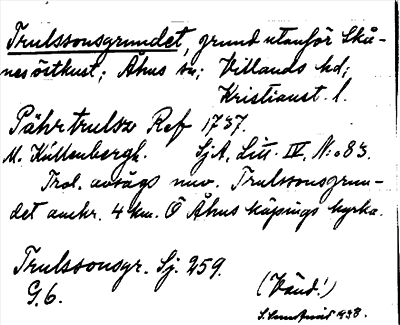 Trulssonsgrundet, grund utanför Skå-
nes östkust; Åhus sn; Villands hd;
Kristianst. l.
Pährtrulsz Ref 1737.
M. Kullenbergh. SjA, Litt. IV, N:o 83.
Trol. avsågs nuv. Trulssonsgrun-
det omkr. 4 km. Ö Åhus köpings kyrka.
Trulssonsgr. Sj. 259.
G. 6.
(Vänd!)
1938.